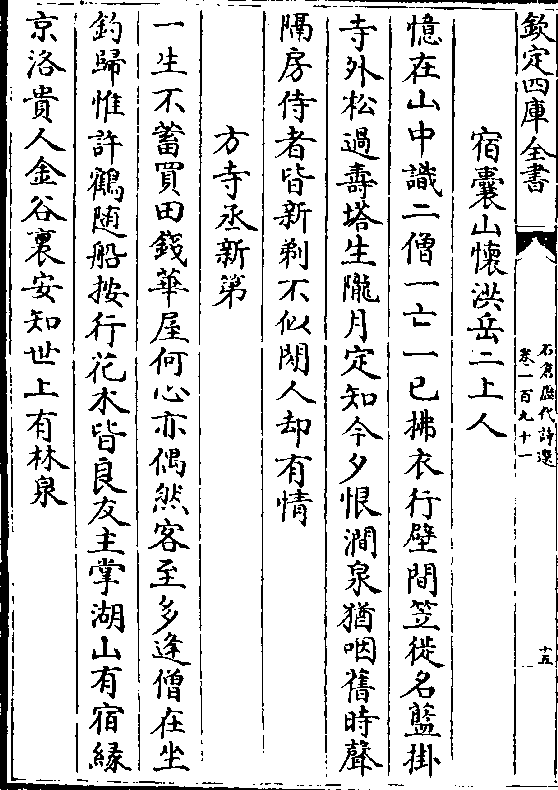 欽定四庫全書
石倉歷代詩選
卷一百九十一
十五
宿囊山懷洪岳二上人
憶在山中識二僧一亡一已拂衣行壁間笠徙名藍掛
寺外松過壽塔生隴月定知今夕恨澗泉猶咽舊時聲
隔房侍者皆新剃不似閒人却有情
方寺丞新第
一生不蓄買田錢華屋何心亦偶然客至多逢僧在坐
釣歸惟許鶴随船按行花木皆良友主掌湖山有宿緣
京洛貴人金谷裏安知世上有林泉